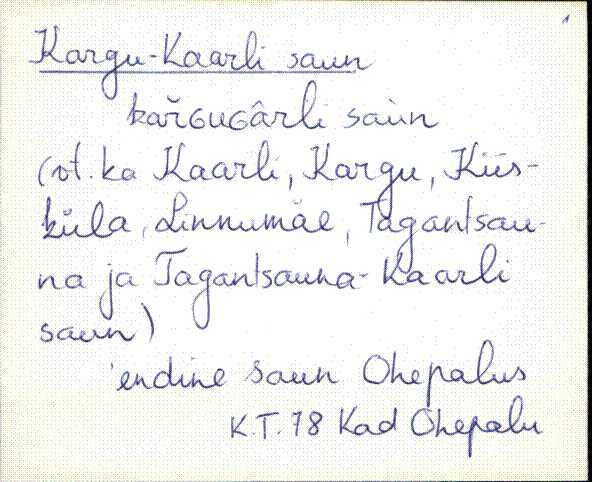 Kargu-Kaarli saun
kařGuGârli saùn
(vt. ka Kaarli, Kargu, Kiis-
küla, Linnumäe, Tagantsau-
na ja Tagantsauna-Kaarli
saun)
endine saun Ohepalus
K.T. 78 Kad Ohepalu